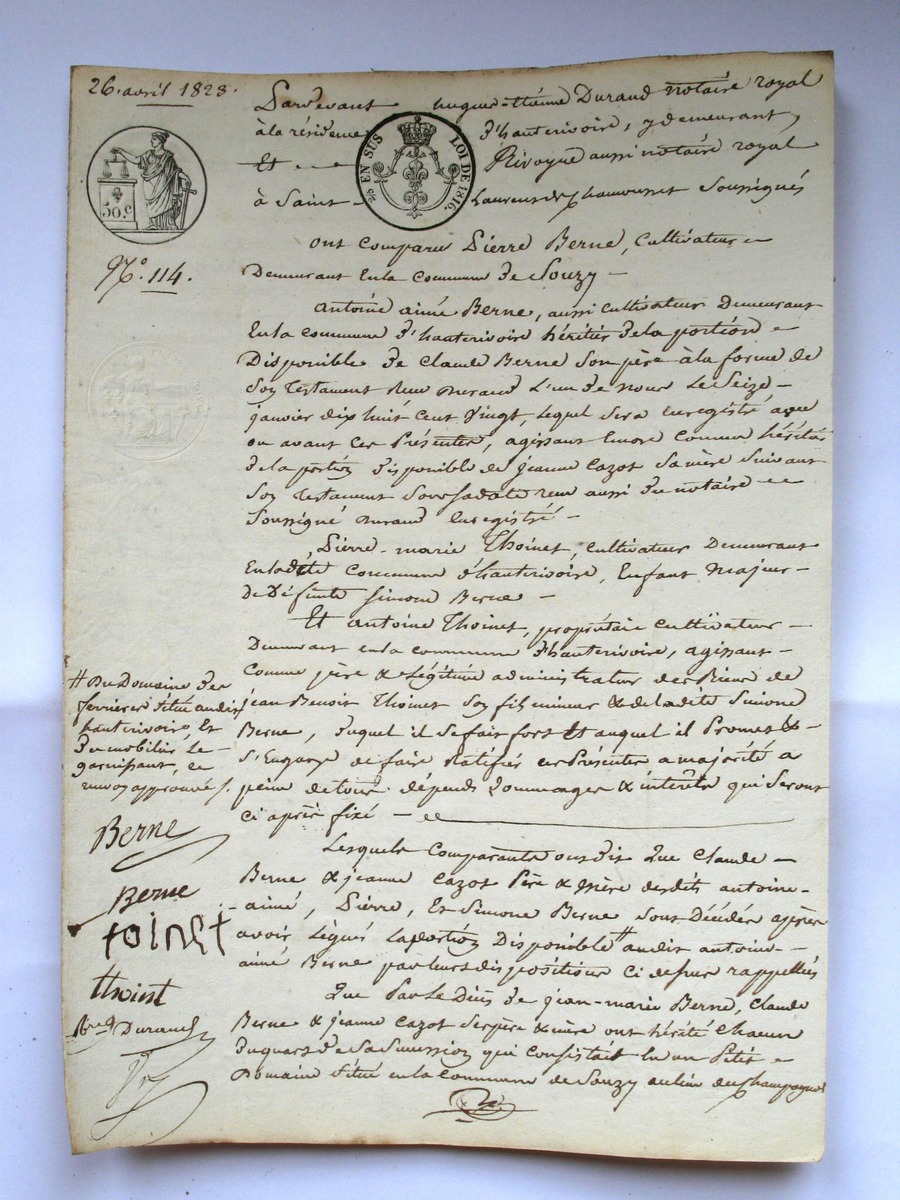 26. avril 1828.
Pardevant hugues-étienne Durand notaire royal
à la résidence d'hauterivoire, y demeurant,
Et Rivoyre aussi notaire royal
à Saint Laurent de Chamousset Soussignés
EN SUS
LOI DE 1816.
50.c
N.o 114.
ont comparu Pierre Berne, Cultivateur
Demeurant En la commune de Souzy
Antoine aimé Berne, aussi Cultivateur Demeurant
En la commune d'hauterivoire héritier de la portion
Disponible de Claude Berne Son père à la forme de
Son Testament Reçu Durand L'un de nous Le Seize
janvier dix huit Cent Vingt, lequel Sera Enregistré avec
ou avant Ces Présentes, agissant Encore Comme héritier
de la portion disponible de jeanne Cazot Sa mère Suivant
Son Testament Sous Sa date reçu aussi du notaire
Soussigné Durand Enregistré
Pierre-marie Thoinet, Cultivateur Demeurant
En ladite Commune d'hauterivoire, Enfant Majeur
De Défunte Simone Berne
Et antoine Thoinet, propriétaire Cultivateur
Demeurant en la commune d'hauterivoire, agissant
Comme père & Légitime administrateur des Biens de
jean Benoit Thoinet Son fils mineur & de ladite Simone
Berne, duquel il Se fait fort Et auquel il Promet &
S'Engage de faire Ratifier ces Présentes a majorité a
peine de tous dépends Dommages & intérêts qui Seront
Ci après fixé
Lesquels Comparants ont dit Que Claude
Berne & jeanne Cazot Père & Mère desdits antoine
aimé, Pierre, Et Simone Berne Sont Décédés après
avoir Légués la portion Disponible # audit antoine
aimé Berne par leurs dispositions Ci dessus rappellés
Que Par Le Décès de jean-marie Berne, Claude
Berne & jeanne Cazot Ses père & mère ont hérité Chacun
Du quart de Sa Succession qui Consistait En un Petit
Domaine Situé en la Commune de Souzy au lieu de Champagne
# Du Domaine des
ferrieres Situé audit
hauterivoire, Et
du mobilier Le
garnissant, ce
renvoy approuvé
Berne
Berne
toinet
thoint
Durand